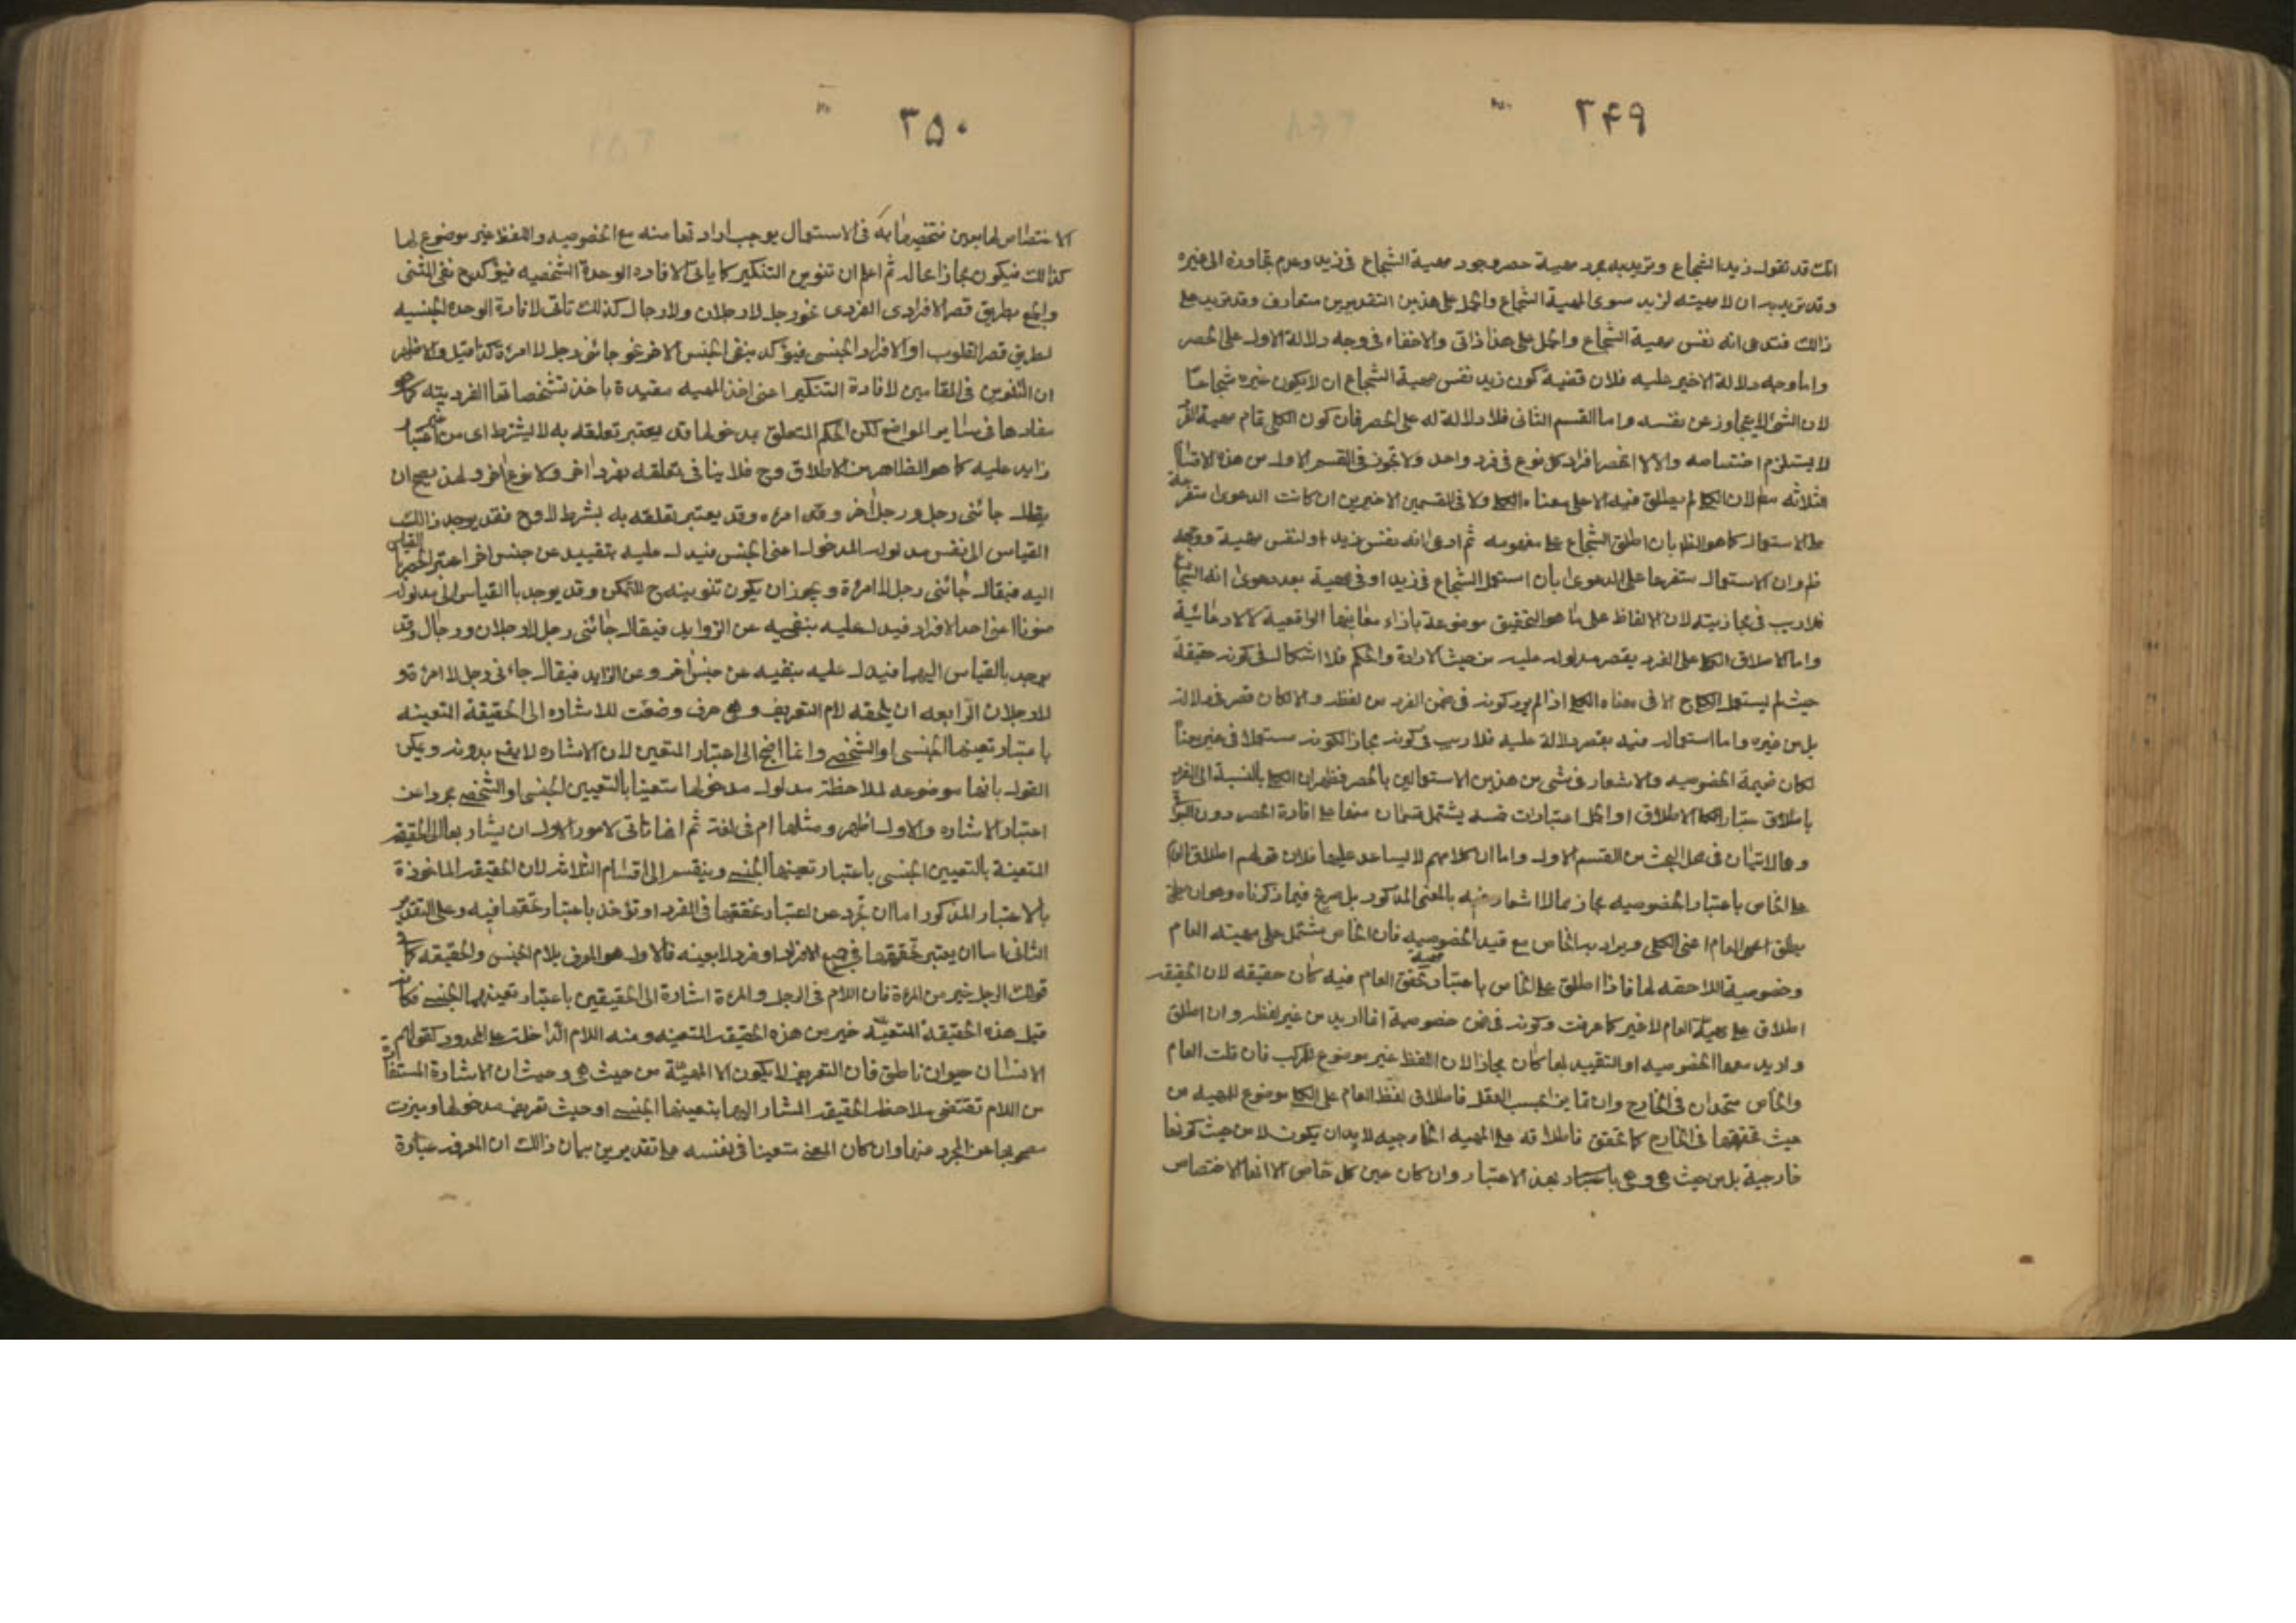 ۳۴۹
انك قد تقول زيد الشجاع وتريد به مجرد مهية حصر وجود مهية الشجاع فى زيد وعدم تجاوزه الى غيره
وقد تريد به ان لا مهيته لزيد سوى المهية الشجاع والحمل على هذين التقديرين متعارف وقد تريد على
ذالك فتدعى انه نفس مهية الشجاع والحمل على هذا ذاتى والاخفاء فى وجه دلالة الاول على الحصر
واما وجه دلالة الاخير عليه فلان قضية كون زيد نفس مهية الشجاع ان لا يكون غيره شجاعا
لان الشئ لا يتجاوز عن نفسه واما القسم الثانى فلا دلالة له على الحصر فان كون الكلى تمام مهية الفرد
لا يستلزم اختصاصه والا لا انحصر افراد كل نوع فى فرد واحد ولا تجوز فى القسم الاول من هذه الاقسام
الثلاثه لان الكلى لم يطلق فيه الا على معناه الكلى ولا فى القسمين الاخيرين ان كانت الدعوى متفرعة
على الاستعمال كما هو الظ بان اطلق الشجاع على مفهومه ثم ادعى انه نفس زيد او نفس مهية ووجهه
ظ وان الاستعمال متفرعا على الدعوى بأن استعمل الشجاع فى زيد او فى مهية بعد دعوى انه الشجاع
فلا ريب فى مجازيته لان الالفاظ على ما هو التحقيق موضوعة بازاء معانيها الواقعية لا الادعائية
واما الاطلاق الكلى على الفرد بقصر مدلوله عليه من حيث الارادة والحكم فلا اشكال فى كونه حقيقة
حيث لم يستعمل الكلى ح الا فى معناه الكلى اذا لم يرد كونه فى ضمن الفرد من لفظه والا كان قصر فى دلالته
بل من غيره واما استعماله فيه بقصر دلالة عليه فلا ريب فى كونه مجازا لكونه مستعملا فى غير معناه
لكان ضيمة الخصوصيه والاشعار فى شئ من هذين الاستعمالين بالحصر فظهر ان الكلى بالنسبة الى الفرد
باطلاق الاطلاق او الحمل اعتبارات خمسه يشتمل قسمان منها على افادة الحصر دون البواقى
وهما لاتيان فى محل البحث من القسم الاول واما ان كلامهم لا يساعد عليها فلان قولهم اطلاق الكلى
على الخاص باعتبار الخصوصيه مجاز مما لا اشعار فيه بالمعنى المذكور بل صريح فيما ذكرناه وهو ان يطلق
يطلق اعم العام اعنى الكلى ويراد به الخاص مع قيد الخصوصيه فان الخاص مشتمل على مهيته العام
وخصوصية اللاحقه لها فاذا اطلق على الخاص باعتبار تحقق العام فيه كان حقيقه لان الحقيقه
اطلاق على مهية العام لا غير كما عرفت وكونه فى ضمن خصوصية انما اريد من غير لفظه وان اطلق
واريد معها الخصوصيه او التقييد بها كان مجازا لان اللفظ غير موضوع للمركب فان قلت العام
والخاص متحدان فى الخارج وان تغاير بحسب العقل فاطلاق لفظ العام على الكلى موضوع للمهيه من
حيث تحققها فى الخارج كما تحقق فاطلاقه على المهيه الخارجيه لا بد ان يكون لا من حيث كونها
خارجية بل من حيث هى وهى باعتبار بعد الاعتبار وان كان عين كل خاص الا انها الاختصاص
۳۵۰
الاختصاص لها بعين فى الاستعمال يوجب اراد تها منه مع الخصوصيه واللفظ غير موضوع لها
كذالك فيكون مجازا عاله ثم اعلم ان تنوين التنكير كما ياتى لافاده الوحدة الشخصيه فيؤكد ح نفى المثنى
والجمع بطريق قصر الافرادى الفردى نحو رجل لا رجلان ولا رجال كذالك تاتى لافادة الوحده الجنسيه
بطريق قصر القلوب او الافراد الجنسى فيؤكد بنفى الجنس الاخر نحو جائنى رجل لا امرءة كذا قيل والاظهر
ان التنوين فى المقامين لافادة التنكير اعنى اخذ المهيه مقيدة باخذ تشخصاتها الفرديته كما هو
مفادها فى ساير المواضع لكن الحكم المتعلق بمدخولها قد يعتبر تعلقه به لا بشرط اى من غير اعتبار
زايد عليه كما هو الظاهر من الاطلاق وح فلا ينافى تعلقه بفرد اخر ولا نوع اخر ولهذا يصح ان
يقال جائنى رجل ورجل اخر وقد امرءه وقد يعتبر تعلقه به بشرط لا وح فقد يوجد ذالك
القياس الى نفس مدلول المدخول اعنى الجنس فيدل عليه بتقييد عن جنس اخر اعتبر الحصر بالقياس
اليه فيقال جائنى رجل لا امرءة ويجوز ان يكون تنوينه ح للتمكن وقد يوجد با القياس الى مدلوله
منونا اعنى احد الافراد فيدل عليه بنفيه عن الزوايد فيقال جائنى رجل لا رجلان ورجال وقد
يوجد بالقياس اليهما فيدل عليه بنفيه عن جنس اخر وعن الزايد فيقال جاء فى رجل لا امرءة و
لا رجلان الرابعه ان يلحقه لام التعريف وهى حرف وضعت للاشاره الى الحقيقة التعينه
باعتبار تعينها الجنسى او الشخصى وانما احتيج الى اعتبار التعين لان الاشاره لا يقع بدونه ويمكن
القول بانها موضوعه لملاحظة مدلول مدخولها متعينا بالتعيين الجنسى او الشخصى مجردا عن
اعتبار الاشاره والاول اظهر ومثلها ام فى لغة ثم انها تاتى لامور الاول ان يشار بها الى الحقيقه
المتعينة بالتعيين الجنسى باعتبار تعينها الجنسى وينقسم الى اقسام الثلاثه لان الحقيقه الماخوذة
بالاعتبار المذكور اما ان تجرد عن اعتبار تحققها فى الفرد او تؤخذ باعتبار تحققها فيه وعلى التقدير
الثانى اما ان يعتبر تحققها فى جميع الافراد او فرد لا بعينه فالاول هو المعرف بلام الجنس والحقيقه كما فى
قولك الرجل خير من المرءة فان اللام فى الرجل والمرءة اشارة الى الحقيقتين باعتبار تعينهما الجنسى فكانه
قيل هذه الحقيقة المتعينة خير من هذه الحقيقه المتعينه ومنه اللام الداخلة على الحدود كقولهم
الانسان حيوان ناطق فان التعريف لا يكون الا المهيّة من حيث هى وحيث ان الاشارة المستفادة
من اللام تقتضى ملاحظه الحقيقه المشار اليها بتعينها الجنسى او حيث تعريف مدخولها وميزت
مصحوبها عن المجرد منها وان كان المعنى متعينا فى نفسه على تقديرين بيان ذالك ان المعرفه عبارة